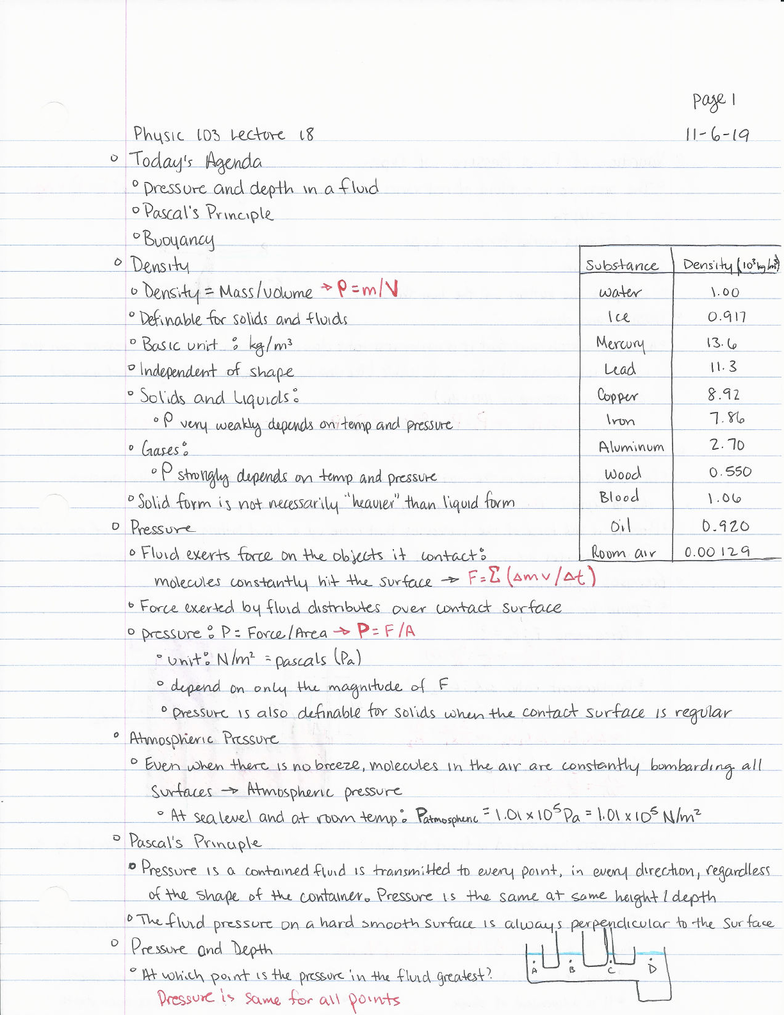 Page 1
Physic 103 Lecture 18
11-6-19
Today's Agenda
Pressure and depth in a fluid
Pascal's Principle
Buoyancy
Density
Density = Mass/volume → ρ=m/V
Definable for solids and fluids
Basic unit : kg/m³
Independent of shape
Solids and Liquids:
ρ very weakly depends on temp and pressure
Gases:
ρ strongly depends on temp and pressure
Solid form is not necessarily "heavier" than liquid form
Substance Density (10³kg/m³)
Water 1.00
Ice 0.917
Mercury 13.6
Lead 11.3
Copper 8.92
Iron 7.86
Aluminum 2.70
Wood 0.550
Blood 1.06
Oil 0.920
Room air 0.00129
Pressure
Fluid exerts force on the objects it contact:
molecules constantly hit the surface → F=Σ(Δmv/Δt)
Force exerted by fluid distributes over contact surface
pressure : P= Force/Area → P=F/A
unit: N/m² = pascals (Pa)
depend on only the magnitude of F
pressure is also definable for solids when the contact surface is regular
Atmospheric Pressure
Even when there is no breeze, molecules in the air are constantly bombarding all
surfaces → Atmospheric pressure
At sea level and at room temp: Patmospheric = 1.01 x 10⁵ Pa = 1.01 x 10⁵ N/m²
Pascal's Principle
Pressure is a contained fluid is transmitted to every point, in every direction, regardless
of the shape of the container. Pressure is the same at same height/depth
The fluid pressure on a hard smooth surface is always perpendicular to the surface
Pressure and Depth
At which point is the pressure in the fluid greatest?
Pressure is same for all points
A B C D